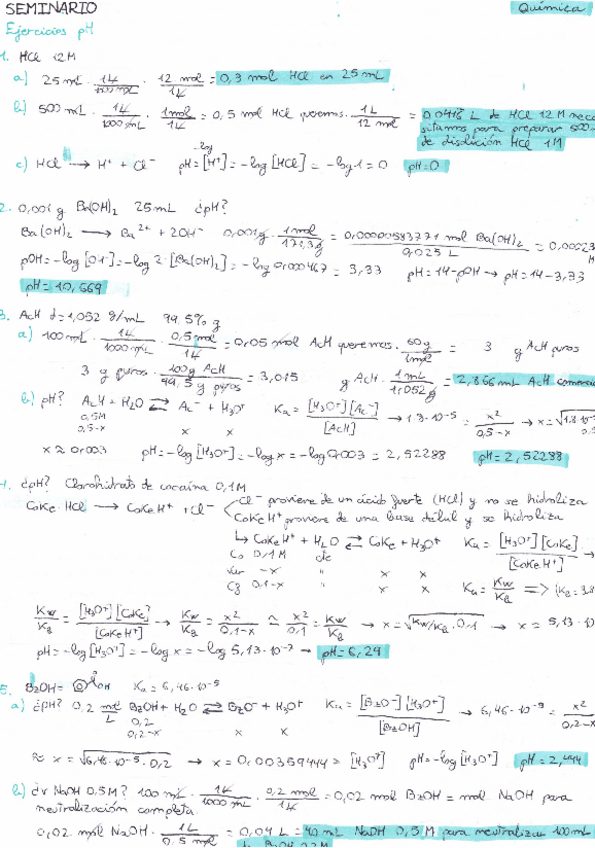 SEMINARIO
Química
Ejercicios pH
1. HCl 12M
a) 25 mL · 1L/1000mL · 12 mol/1L = 0,3 mol HCl en 25 mL
b) 500 mL · 1L/1000mL · 1mol/1L = 0,5 mol HCl queremos · 1L/12 mol = L de HCl 12M
para preparar
de disolución HCl 1M
c) HCl → H⁺ + Cl⁻ pH = [H⁺] = -log [HCl] = -log·1 = 0 pH=0
-log
2. 0,001 g Ba(OH)₂ 25 mL ¿pH?
Ba(OH)₂ → Ba²⁺ + 2OH⁻ 0,001g · 1mol/171,3g = 0,00000583771 mol Ba(OH)₂/0,025 L =
pOH = -log [OH⁻] = -log 2·[Ba(OH)₂] = -log 0,000467 = 3,33 pH = 14-pOH → pH = 14-3,33
pH = 10,669
3. AcH d=1,052 g/mL 99,5% g
a) 100 mL · 1L/1000mL · 0,5 mol/1L = 0,05 mol AcH queremos · 60g/1mol = 3 g AcH puros
3 g puros · 100g AcH/99,5 g puros = 3,015 g AcH · 1mL/1,052g = 2,866 mL AcH
b) pH? AcH + H₂O ⇄ Ac⁻ + H₃O⁺ Ka = [H₃O⁺][Ac⁻]/[AcH] → 1,8·10⁻⁵ = x²/0,5-x → x =
0,5M
0,5-x x x
x ≈ 0,003 pH = -log [H₃O⁺] = -log x = -log 0,003 = 2,52288 pH = 2,52288
4. ¿pH? Clorohidrato de cocaína 0,1M
CoKe·HCl → CoKeH⁺ + Cl⁻
Cl⁻ proviene de un ácido fuerte (HCl) y no se hidroliza
CoKeH⁺ proviene de una base débil y se hidroliza
↳ CoKeH⁺ + H₂O ⇄ CoKe + H₃O⁺ Ka = [H₃O⁺][CoKe]/[CoKeH⁺] →
Co 0,1M
-x " x x
0,1-x " x x Ka = Kw/KB =>
Kw/KB = [H₃O⁺][CoKe]/[CoKeH⁺] → Kw/KB = x²/0,1-x ≈ x²/0,1 = Kw/KB → x = √Kw/KB·0,1 → x = 5,13·10
pH = -log [H₃O⁺] = -log x = -log 5,13·10⁻⁷ → pH = 6,29
5. BzOH = Ka = 6,46·10⁻⁵
a) ¿pH? 0,2 mol/L BzOH + H₂O ⇄ BzO⁻ + H₃O⁺ Ka = [BzO⁻][H₃O⁺]/[BzOH] → 6,46·10⁻⁵ = x²/0,2-x
0,2
0,2-x x x
≈ x = √6,46·10⁻⁵·0,2 → x = 0,00359444 = [H₃O⁺] pH = -log [H₃O⁺] pH = 2,444
b) ¿v NaOH 0,5M? 100 mL · 1L/1000mL · 0,2 mol/1L = 0,02 mol BzOH = mol NaOH para
neutralización completa.
0,02 mol NaOH · 1L/0,5 mol = 0,04 L = 40 mL NaOH 0,5M para neutralizar 100mL